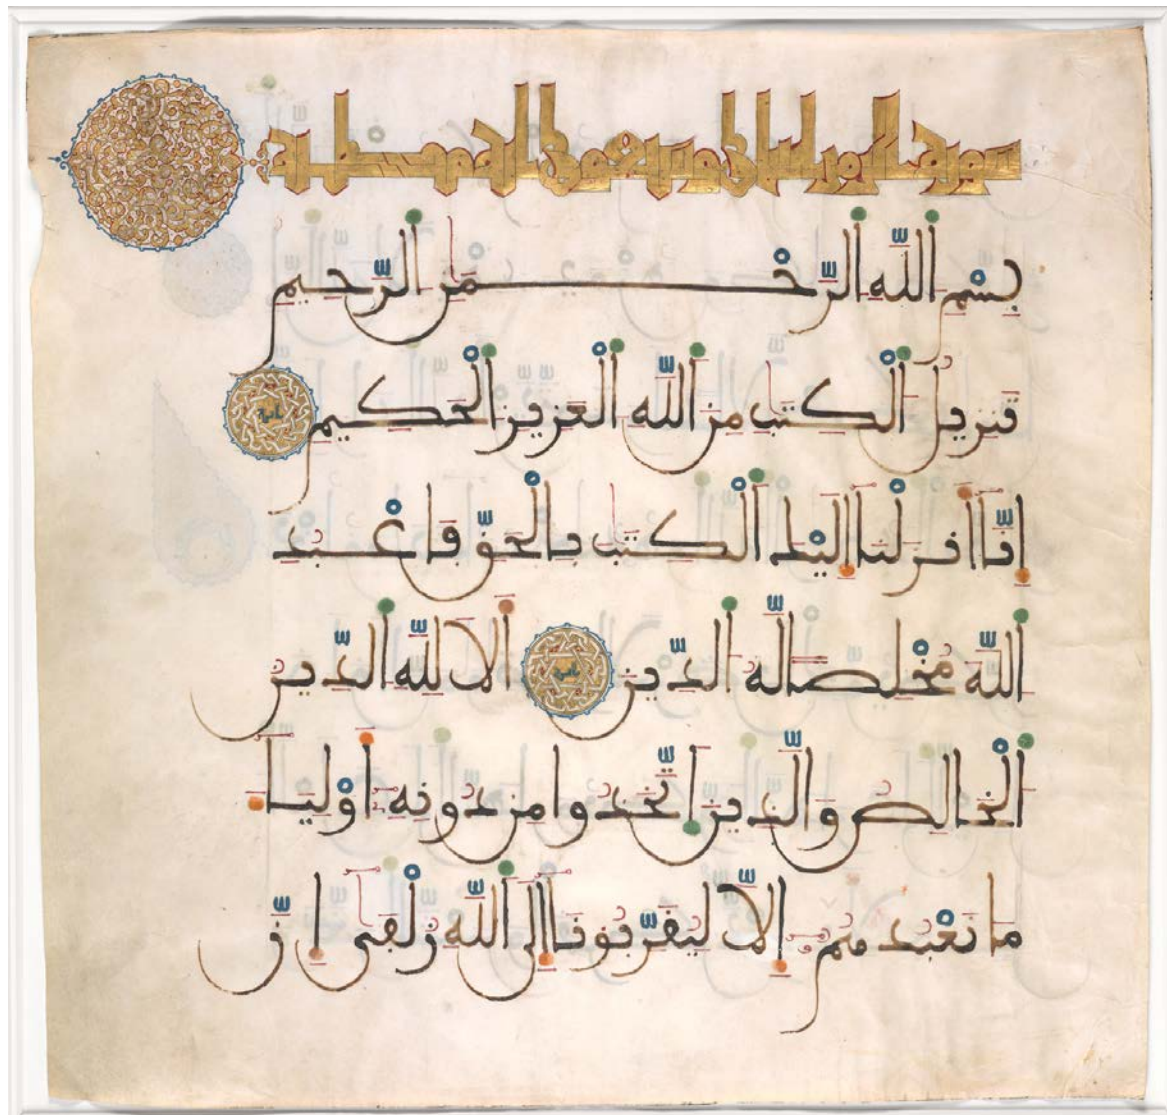 سورة الزمر
بسم الله الرحمن الرحيم
تنزيل الكتب من الله العزيز الحكيم
إنا أنزلنا إليك الكتب بالحق فاعبد
الله مخلصا له الدين ألا لله الدين
الخالص والذين اتخذوا من دونه أولياء
ما نعبدهم إلا ليقربونا إلى الله زلفى إن